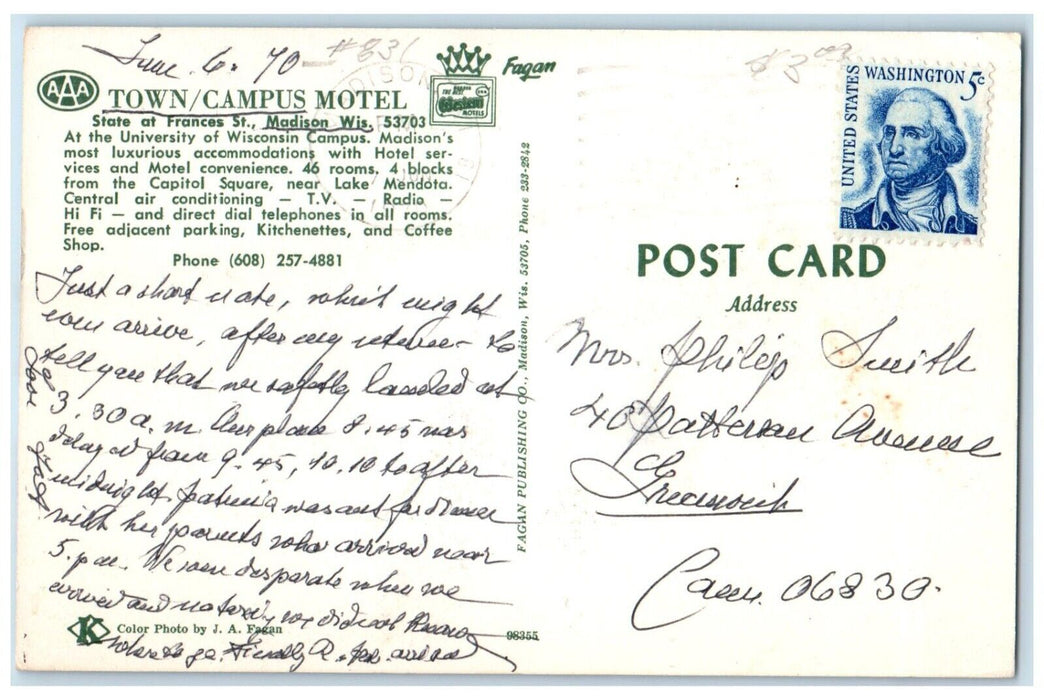 June 6. 70 #831
AAA
TOWN/CAMPUS MOTEL
Fagan
State at Frances St., Madison Wis. 53703
At the University of Wisconsin Campus. Madison's
most luxurious accommodations with Hotel ser-
vices and Motel convenience. 46 rooms. 4 blocks
from the Capitol Square, near Lake Mendota.
Central air conditioning — T.V. — Radio —
Hi Fi — and direct dial telephones in all rooms.
Free adjacent parking, Kitchenettes, and Coffee
Shop.
Phone (608) 257-4881
Just a short note, which might
even arrive, after my return - to
tell you that we safely landed at
3.30 a.m. Our plane 8.45 was
delayed from 9.45, 10.10 to after
midnight. Patricia was out for dinner
with her parents who arrived near
5. p.m. We were desperate when we
arrived and we did not know
where to go. Finally
Love
K Color Photo by J. A. Fagan
98355
FAGAN PUBLISHING CO., Madison, Wis. 53705, Phone 233-2842
$3.00
UNITED STATES
WASHINGTON 5c
MADISON
POST CARD
Address
Mrs. Philip Smith
40 Patterson Avenue
Greenwich
Conn. 06830.